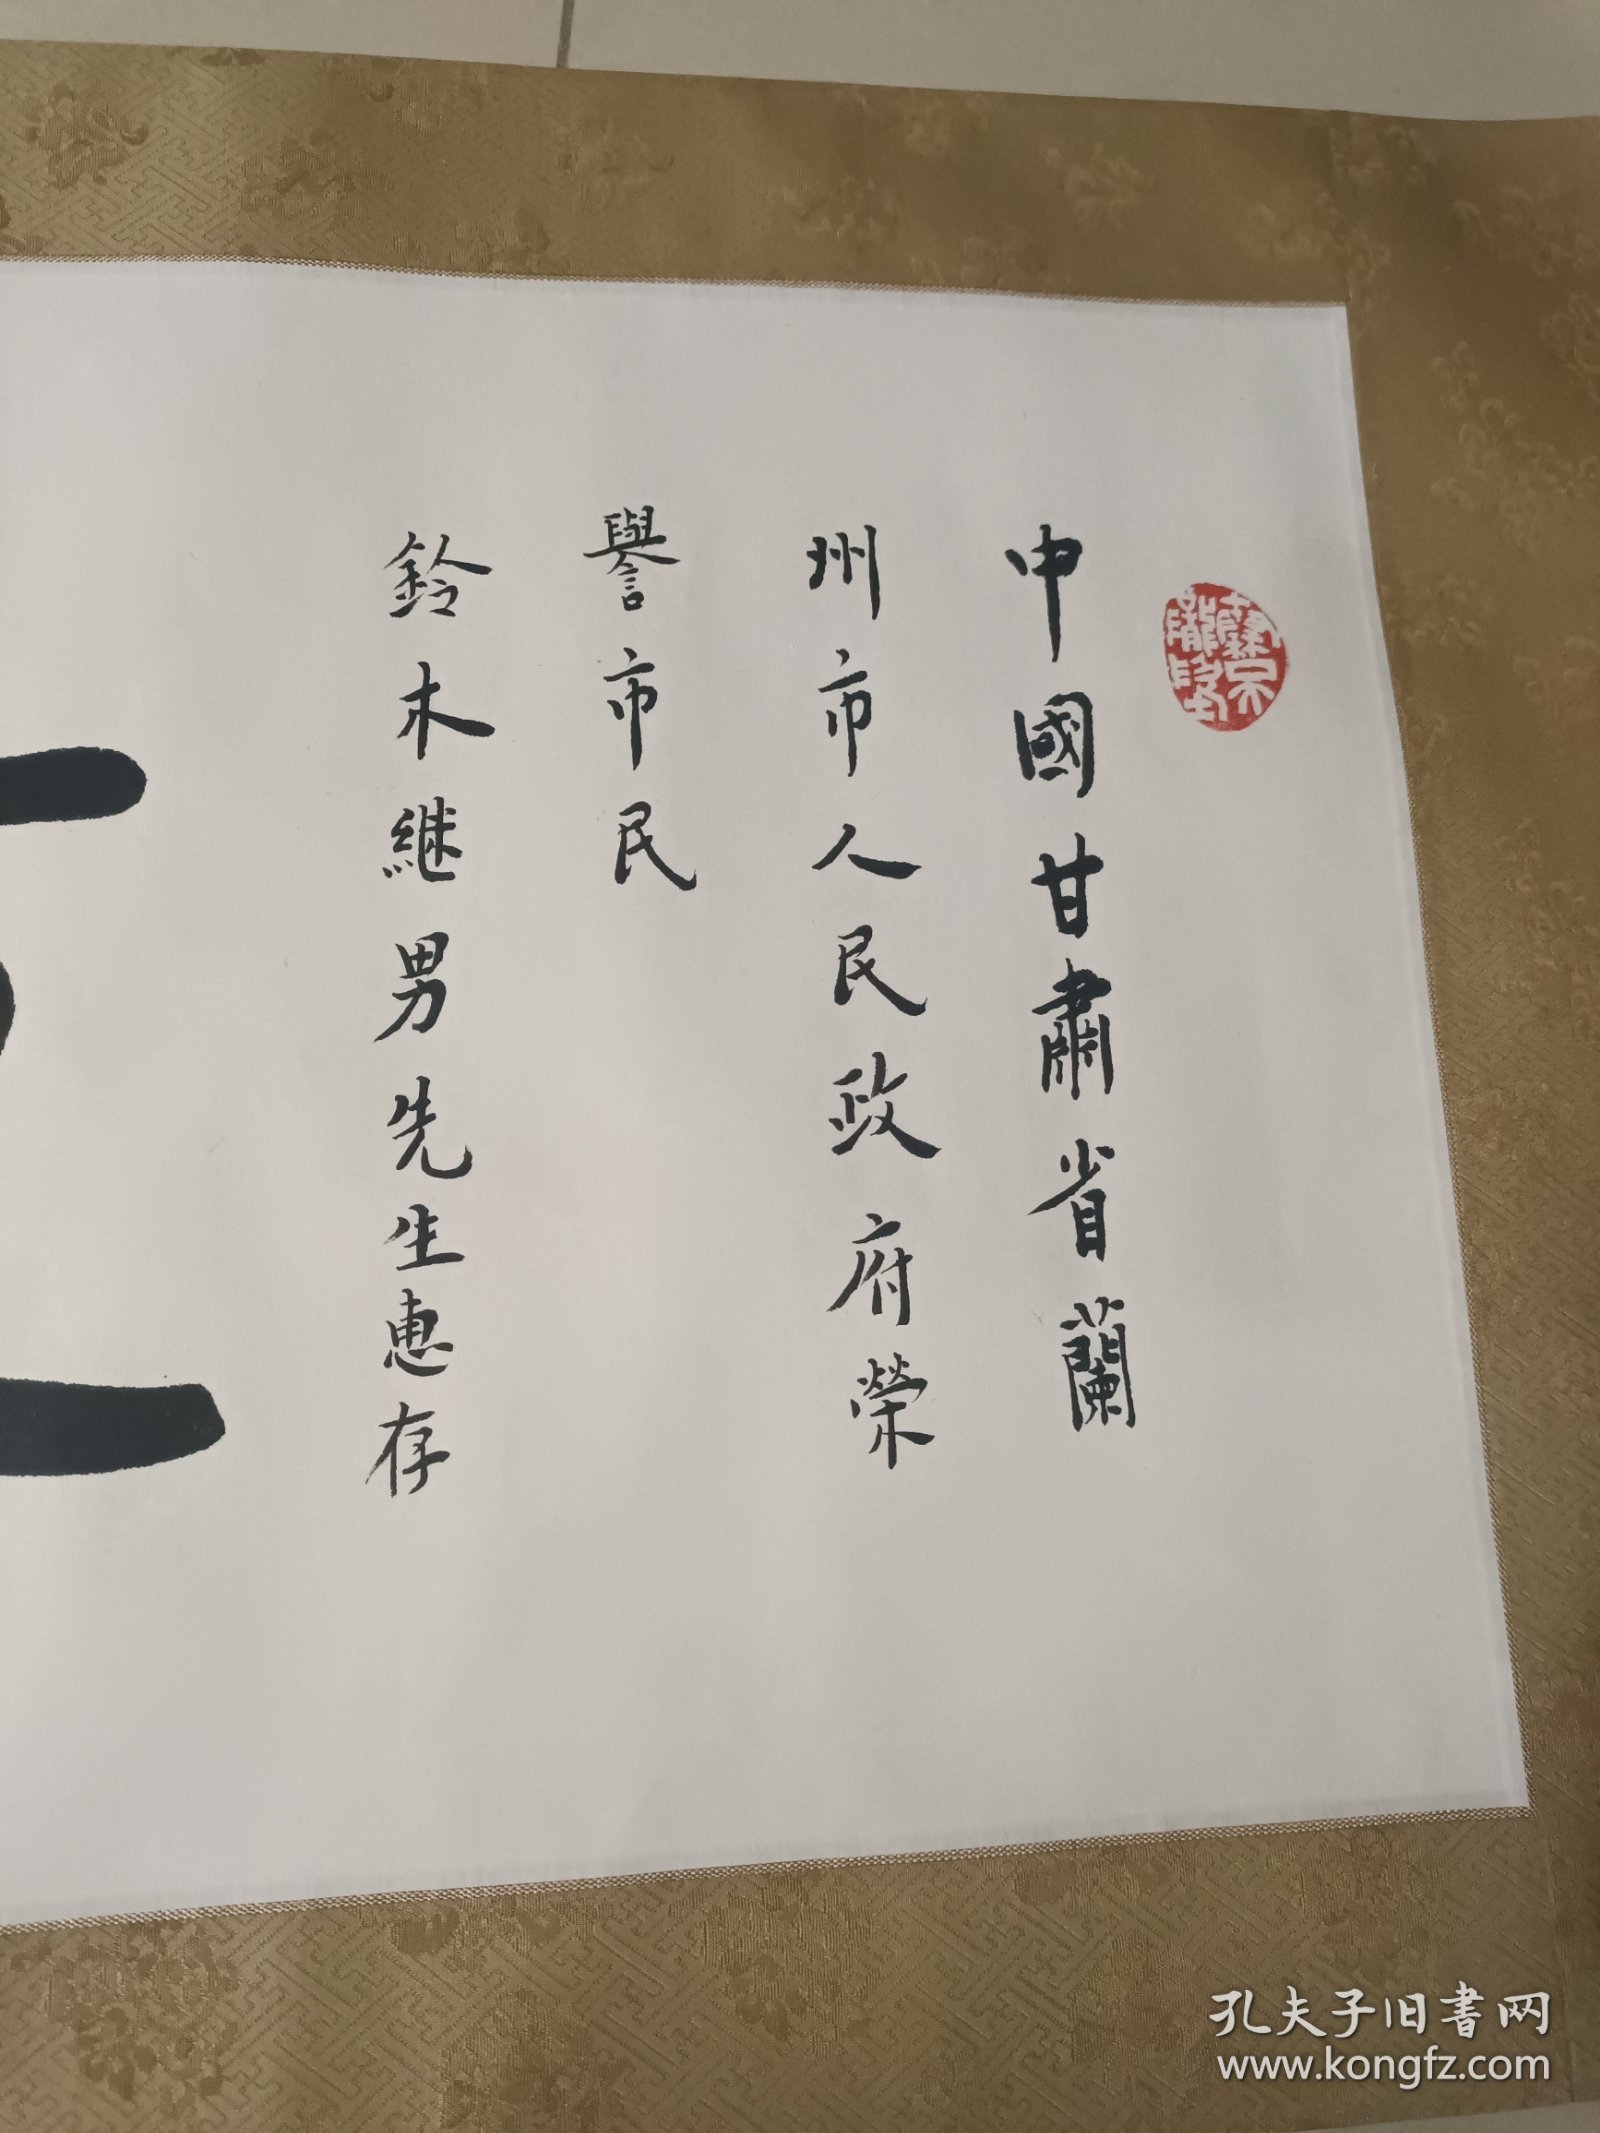 中國甘肅省蘭
州市人民政府榮
譽市民
鈴木継男先生惠存
孔夫子旧書网
www.kongfz.com